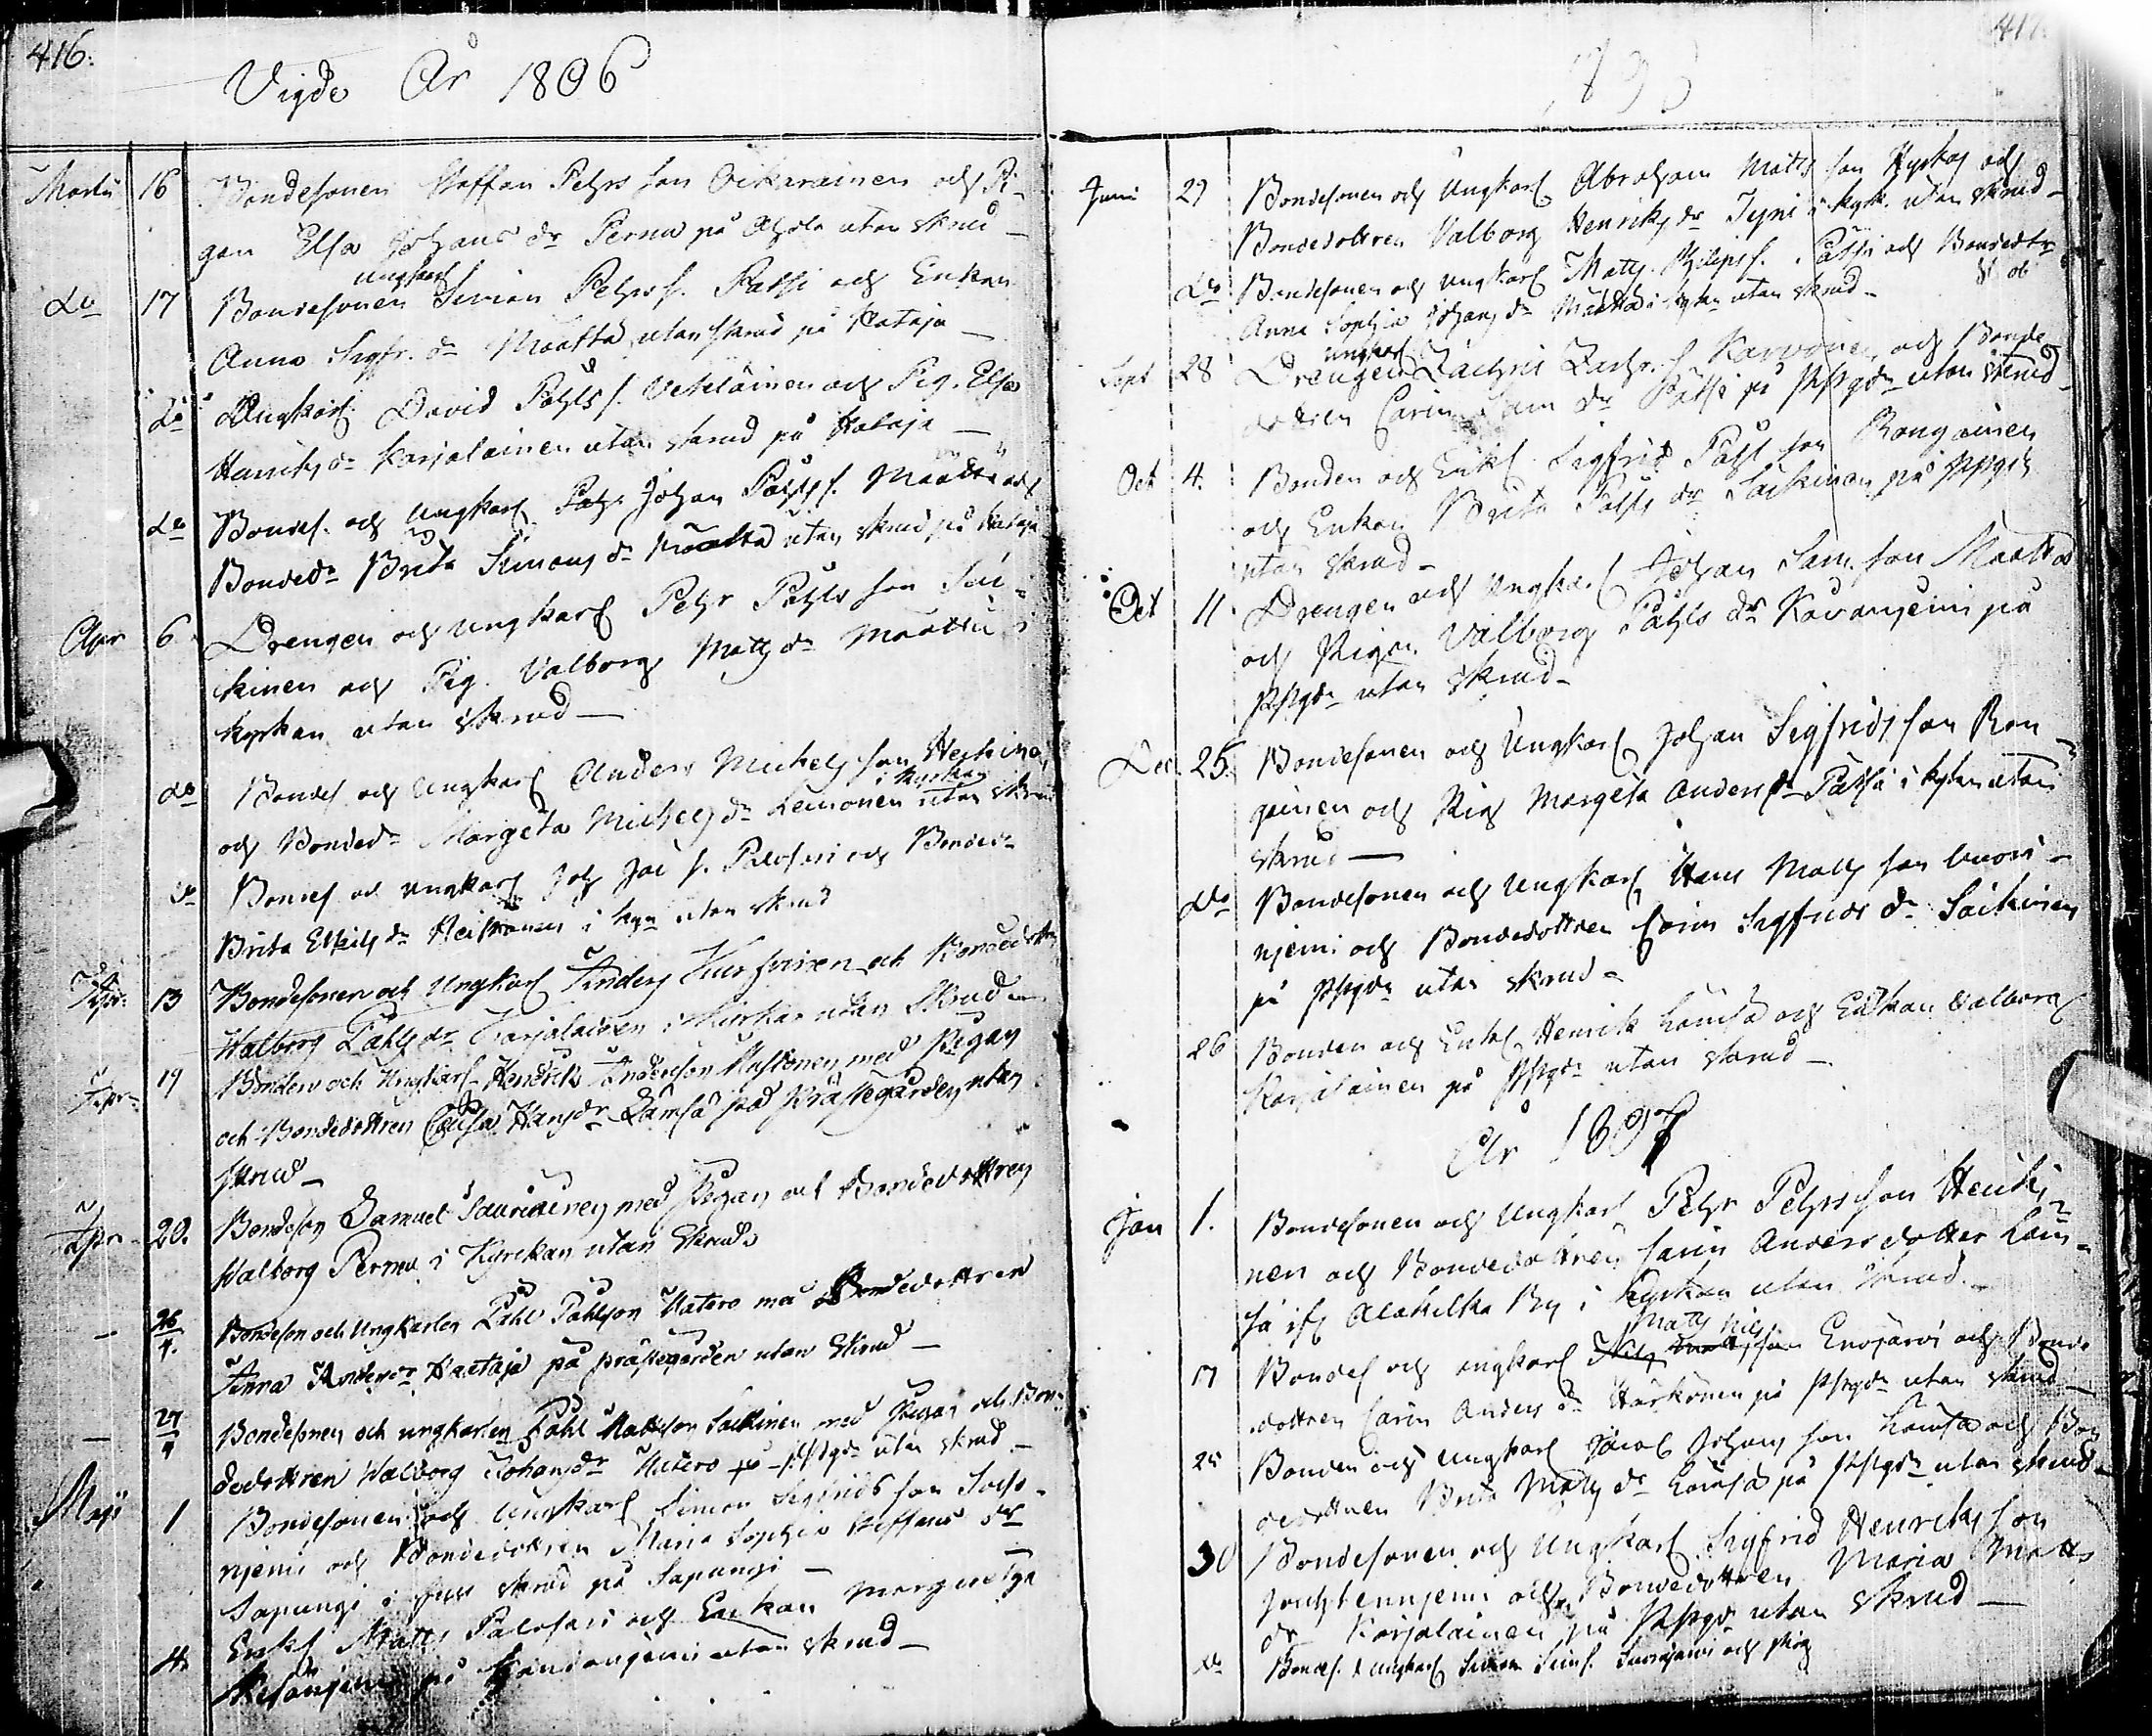 416.
Vigde År 1806
Martii 16 Bondesonen Staffan Pehrs son Oikarainen och Pi-
gan Elsa Johans dr Perna på Ahola utan skrud
ungkarl
do 17 Bondesonen Simon Pehrs s. Passi och Enkan
Anna Sigfr. dr Maatta utan skrud på Hataja
do Ungkarl David Pahls s. Vehkläinen och Pig. Elsa
Henriks dr Karjalainen utan skrud på Hataja
do Bondes. och Ungkarl Johan Pahls s. Maatta och
Bondedr Brita Simons dr Maatta utan skrud på Hataja
Apr 6 Drengen och Ungkarl Pehr Pahls son Säi-
kinen och Pig. Valborg Matts dr Maatta i
kyrkan utan skrud
do Bondes och Ungkarl Anders Michels son
i kyrkan
och Bondedr Margeta Michels dr Lemonen utan skrud
do Bondes och ungkarl Joh Jac s. Palosari och Bondedr
Brita Eskils dr i kyrn utan skrud
Apr. 13 Bondesonen och Ungkarl Anders och Bondedottren
Walborg Påhls dr Karjalainen i Kirkan utan Skrud
Apr. 19 Bonden och Ungkarl Hendrik Anderson Mustonen med Pigan
och Bondedottren Elisa Hans dr Lämsä på Prästegården utan
skrud
Apr. 20. Bondeson Samuel med Pigan och Bondedottren
Walborg Perna i Kyrckan utan Skrud
26/4. Bondeson och Ungkarlen Påhl Påhlson Matero med Bondedottren
Anna Anders dr Haataja på prästegården utan Skrud
27/4 Bondesonen och ungkarlen Påhl Mattson Säikinen med Pigan och Bon-
dedottren Walborg Johans dr Matero på PPgdn utan skrud
Maji 1 Bondesonen och Ungkarl Simon Sigfrids son
niemi och Bondedottren Maria Sophia Staffans dr
Sapungi i full skrud på Sapungi
4. Enkl Matts Palosari och Enkan Margaretha
på utan skrud
417.
1806
Juni 29 Bondesonen och Ungkarl Abraham Matts son och
Bondedottren Valborg Henriks dr Tyni i kyrk. utan skrud
do Bondesonen och Ungkarl Matts Philips s. Pätsi och Bondedtr
Anna Sophia Johans dr Määttä i kyrkan utan skrud
ungkarl
Sept 28 Drengen Zachris Zachr. s Karvonen och Bonde
dottren Carin Sam dr Pätsi på PPgdn utan skrud
Oct 4. Bonden och Enkl Sigfrid Påhl son Rongainen
och Enkan Brita Pahls dr Säikinen på PPgdn
utan skrud
Oct 11 Drengen och Ungkarl Johan Sam. son Maatta
och Pigan Valborg Påhls dr Kavanjemi på
PPgdn utan skrud
Dec. 25. Bondesonen och Ungkarl Johan Sigfrids son Ron-
gainen och Pig Margeta Anders dr Pätsi i kyrkan utan
skrud
do Bondesonen och Ungkarl Hans Matts son Vuori-
njemi och Bondedottren Carin Sigfrids dr Säikinen
på PPgdn utan skrud
26 Bonden och Enkl Henrik Lämsä och Enkan Valborg
Karjalainen på PPgdn utan skrud
År 1807
Jan 1. Bondesonen och Ungkarl Pehr Pehrs son Heiki-
nen och Bondedottren Carin Anders dotter Läm-
sä ifr. Alakitka By i kyrkan utan skrud
Matts Nils
17 Bondes och ungkarl son Enojärvi och Bonde
dottren Carin Anders dr Härkönen på PPgdn utan skrud
25 Bonden och Ungkarl Jacob Johans son Lämsä och Bon
dedottren Brita Matts dr Lämsä på PPgdn utan skrud
30 Bondesonen och Ungkarl Sigfrid Henriks son
och Bondedottren Maria Matts
dr Karjalainen på PPgdn utan skrud
do Bondes. & Ungkarl Simon Sims. och Pig